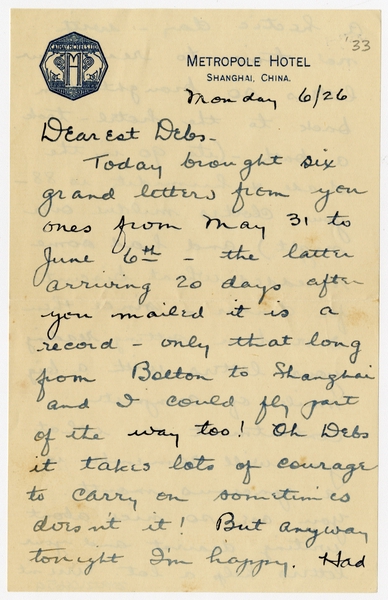 '33
CATHAY HOTELS LTD.
METROPOLE HOTEL
SHANGHAI, CHINA.
Monday 6/26
Dearest Debs-
Today brought six
grand letters from you
ones from May 31 to
June 6th - the latter
arriving 20 days after
you mailed it is a
record - only that long
from Bolton to Shanghai
and I could fly part
of the way too! Oh Debs
it takes lots of courage
to carry on sometimes
doesn't it! But anyway
tonight I'm happy. Had